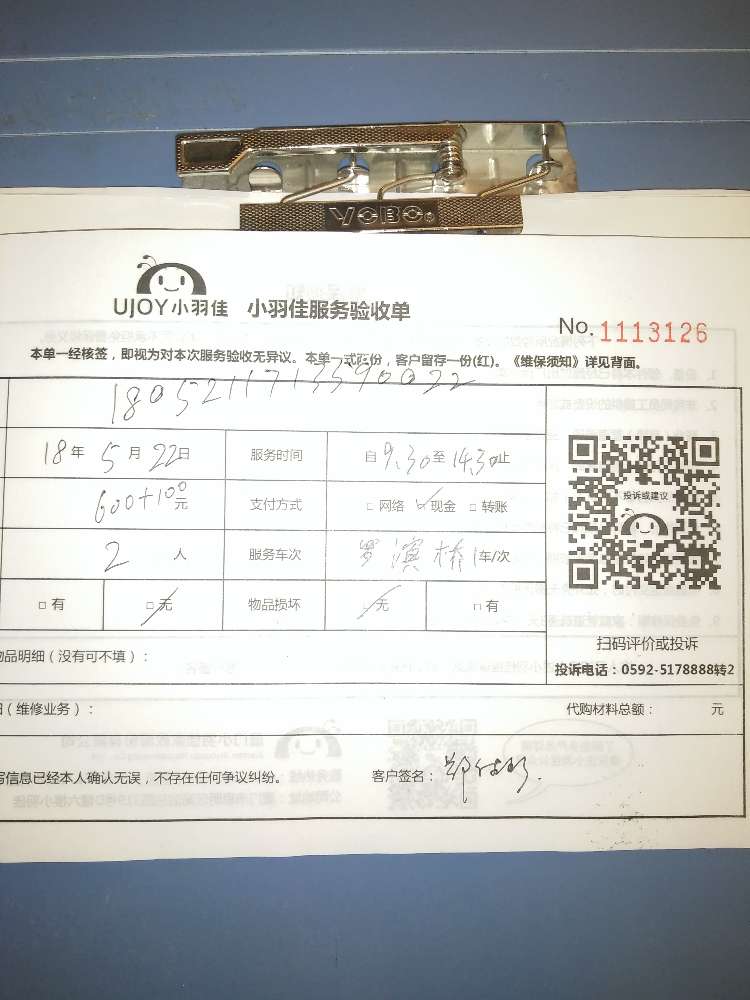 VOBO
UJOY小羽佳 小羽佳服务验收单
No.1113126
本单一经核签，即视为对本次服务验收无异议。本单一式两份，客户留存一份(红)。《维保须知》详见背面。
18年5月22日 服务时间 自9.30至14.30止
600+100元 支付方式 □网络 ☑现金 □转账
投诉或建议
2人 服务车次 1车/次
□有 □无 物品损坏 无 □有
扫码评价或投诉
品明细（没有可不填）：
投诉电话：0592-5178888转2
（维修业务）： 代购材料总额： 元
写信息已经本人确认无误，不存在任何争议纠纷。 客户签名：